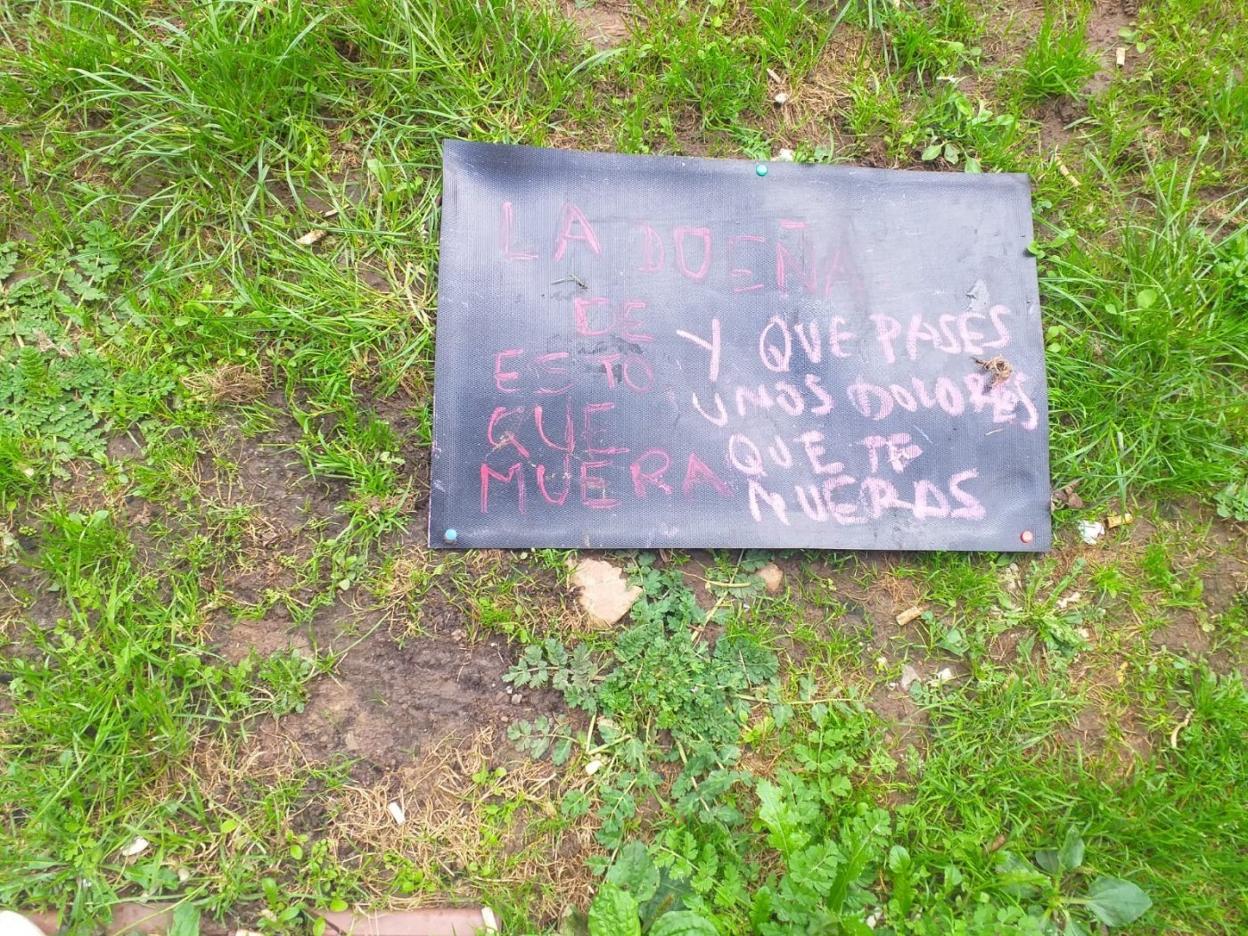 LA DUEÑA
DE
ESTO
QUE
MUERA
Y QUE PASES
UNOS DOLORES
QUE TE
MUERAS